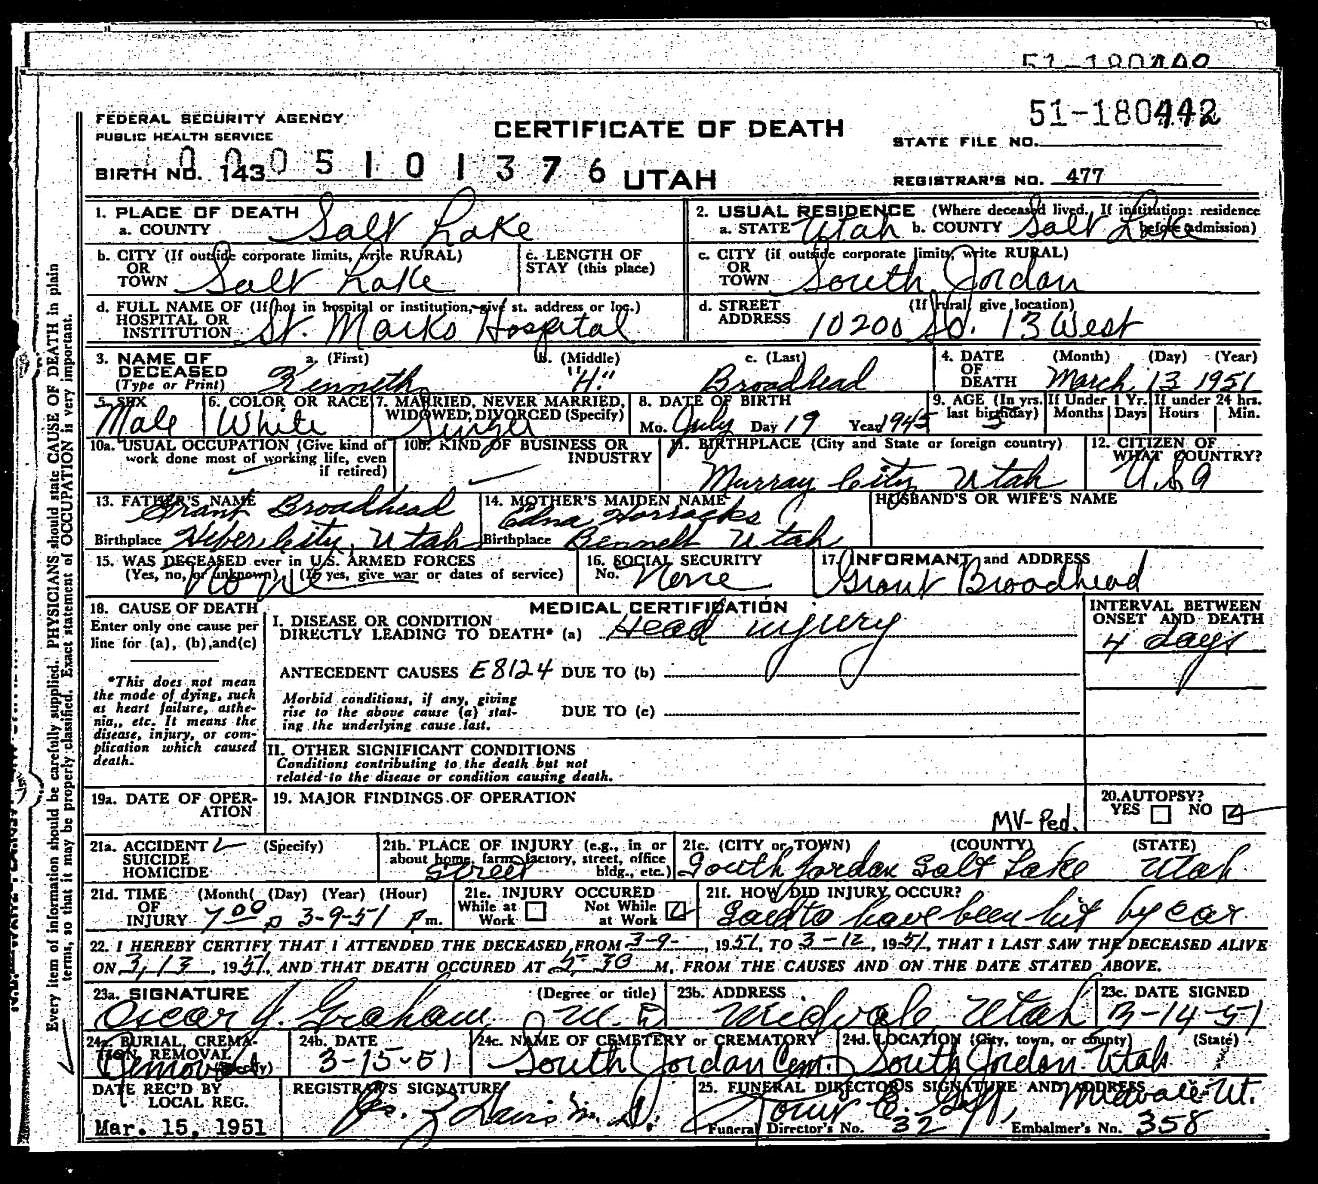 51-180442
FEDERAL SECURITY AGENCY
PUBLIC HEALTH SERVICE
CERTIFICATE OF DEATH
51-180442
STATE FILE NO.
BIRTH NO. 143 0005101376 UTAH
REGISTRAR'S NO. 477
1. PLACE OF DEATH
a. COUNTY Salt Lake
2. USUAL RESIDENCE (Where deceased lived. If institution: residence before admission)
a. STATE Utah b. COUNTY Salt Lake
b. CITY (If outside corporate limits, write RURAL)
OR
TOWN Salt Lake
c. LENGTH OF
STAY (this place)
c. CITY (if outside corporate limits, write RURAL)
OR
TOWN South Jordan
d. FULL NAME OF (If not in hospital or institution, give st. address or loc.)
HOSPITAL OR
INSTITUTION St. Marks Hospital
d. STREET (If rural give location)
ADDRESS 10200 So. 13 West
3. NAME OF
DECEASED
(Type or Print)
a. (First) b. (Middle) c. (Last)
Kenneth "H." Broadhead
4. DATE (Month) (Day) (Year)
OF
DEATH March 13 1951
5. SEX
Male
6. COLOR OR RACE
White
7. MARRIED, NEVER MARRIED,
WIDOWED, DIVORCED (Specify)
Single
8. DATE OF BIRTH
Mo. July Day 19 Year 1945
9. AGE (In yrs. last birthday) If Under 1 Yr. If under 24 hrs.
5 Months Days Hours Min.
10a. USUAL OCCUPATION (Give kind of
work done most of working life, even
if retired)
10b. KIND OF BUSINESS OR
INDUSTRY
11. BIRTHPLACE (City and State or foreign country)
Murray City Utah
12. CITIZEN OF
WHAT COUNTRY?
USA
13. FATHER'S NAME
Grant Broadhead
Birthplace Heber City, Utah
14. MOTHER'S MAIDEN NAME
Edna Horrocks
Birthplace Bennett Utah
HUSBAND'S OR WIFE'S NAME
15. WAS DECEASED ever in U.S. ARMED FORCES
(Yes, no, or unknown) (If yes, give war or dates of service)
None
16. SOCIAL SECURITY
No. None
17. INFORMANT and ADDRESS
Grant Broadhead
18. CAUSE OF DEATH
Enter only one cause per
line for (a), (b), and (c)
*This does not mean
the mode of dying, such
as heart failure, asthe-
nia, etc. It means the
disease, injury, or com-
plication which caused
death.
MEDICAL CERTIFICATION
I. DISEASE OR CONDITION
DIRECTLY LEADING TO DEATH* (a) Head injury
ANTECEDENT CAUSES E8124 DUE TO (b)
Morbid conditions, if any, giving
rise to the above cause (a) stat-
ing the underlying cause last.
DUE TO (c)
II. OTHER SIGNIFICANT CONDITIONS
Conditions contributing to the death but not
related to the disease or condition causing death.
INTERVAL BETWEEN
ONSET AND DEATH
4 days
19a. DATE OF OPER-
ATION
19. MAJOR FINDINGS OF OPERATION
MV-Ped.
20. AUTOPSY?
YES NO
21a. ACCIDENT (Specify)
SUICIDE
HOMICIDE
21b. PLACE OF INJURY (e.g., in or
about home, farm, factory, street, office
bldg., etc.)
Street
21c. (CITY or TOWN) (COUNTY) (STATE)
South Jordan Salt Lake Utah
21d. TIME (Month) (Day) (Year) (Hour)
OF
INJURY 7:00 p 3-9-51 p m.
21e. INJURY OCCURED
While at Work Not While at Work
21f. HOW DID INJURY OCCUR?
Said to have been hit by car
22. I HEREBY CERTIFY THAT I ATTENDED THE DECEASED FROM 3-9-, 1951, TO 3-12, 1951, THAT I LAST SAW THE DECEASED ALIVE
ON 3,13, 1951, AND THAT DEATH OCCURED AT 5-30 M, FROM THE CAUSES AND ON THE DATE STATED ABOVE.
23a. SIGNATURE (Degree or title)
Oscar J. Graham M.D.
23b. ADDRESS
Midvale Utah
23c. DATE SIGNED
3-14-51
24a. BURIAL, CREMA-
TION, REMOVAL
(Specify) Removal
24b. DATE
3-15-51
24c. NAME OF CEMETERY or CREMATORY
South Jordan Cem.
24d. LOCATION (City, town, or county) (State)
South Jordan Utah
DATE REC'D BY
LOCAL REG.
Mar. 15, 1951
REGISTRAR'S SIGNATURE
25. FUNERAL DIRECTOR'S SIGNATURE AND ADDRESS
Midvale Ut.
Funeral Director's No. 32 Embalmer's No. 358
Every item of information should be carefully supplied. PHYSICIANS should state CAUSE OF DEATH in plain
terms, so that it may be properly classified. Exact statement of OCCUPATION is very important.